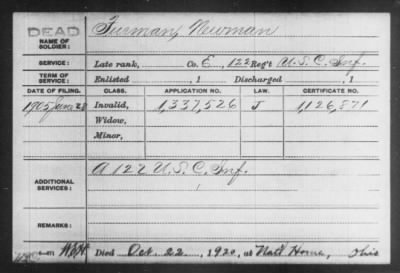 DEAD Furman, Newman
NAME OF SOLDIER:
SERVICE: Late rank, Co. E, 122 Reg't U.S.C. Inf.
TERM OF SERVICE: Enlisted , 1 Discharged , 1
DATE OF FILING. CLASS. APPLICATION NO. LAW. CERTIFICATE NO.
1905 June 28 Invalid, 1,337,526 J 1,126,871
Widow,
Minor,
ADDITIONAL SERVICES: A 122 U.S.C. Inf.
REMARKS:
Died Oct. 22, 1920, at Nat'l Home, Ohio